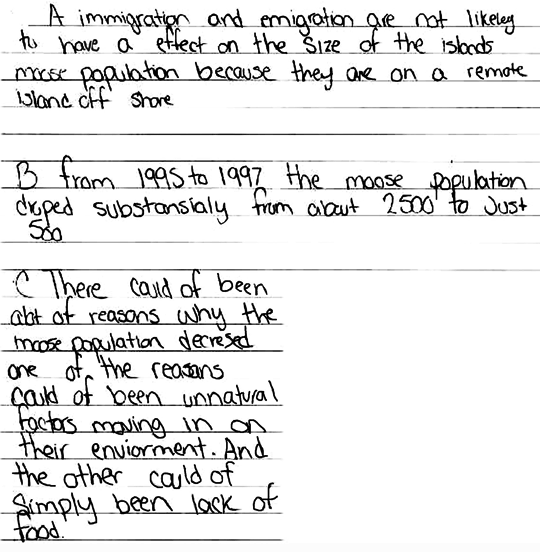 A immigration and emigration are not likeley
to have a effect on the size of the islands
moose population because they are on a remote
island off shore
B from 1995 to 1997 the moose population
droped substansialy from about 2500 to Just
500
C There could of been
alot of reasons why the
moose population decresed
one of the reasons
could of been unnatural
factors moving in on
their enviorment. And
the other could of
simply been lack of
food.